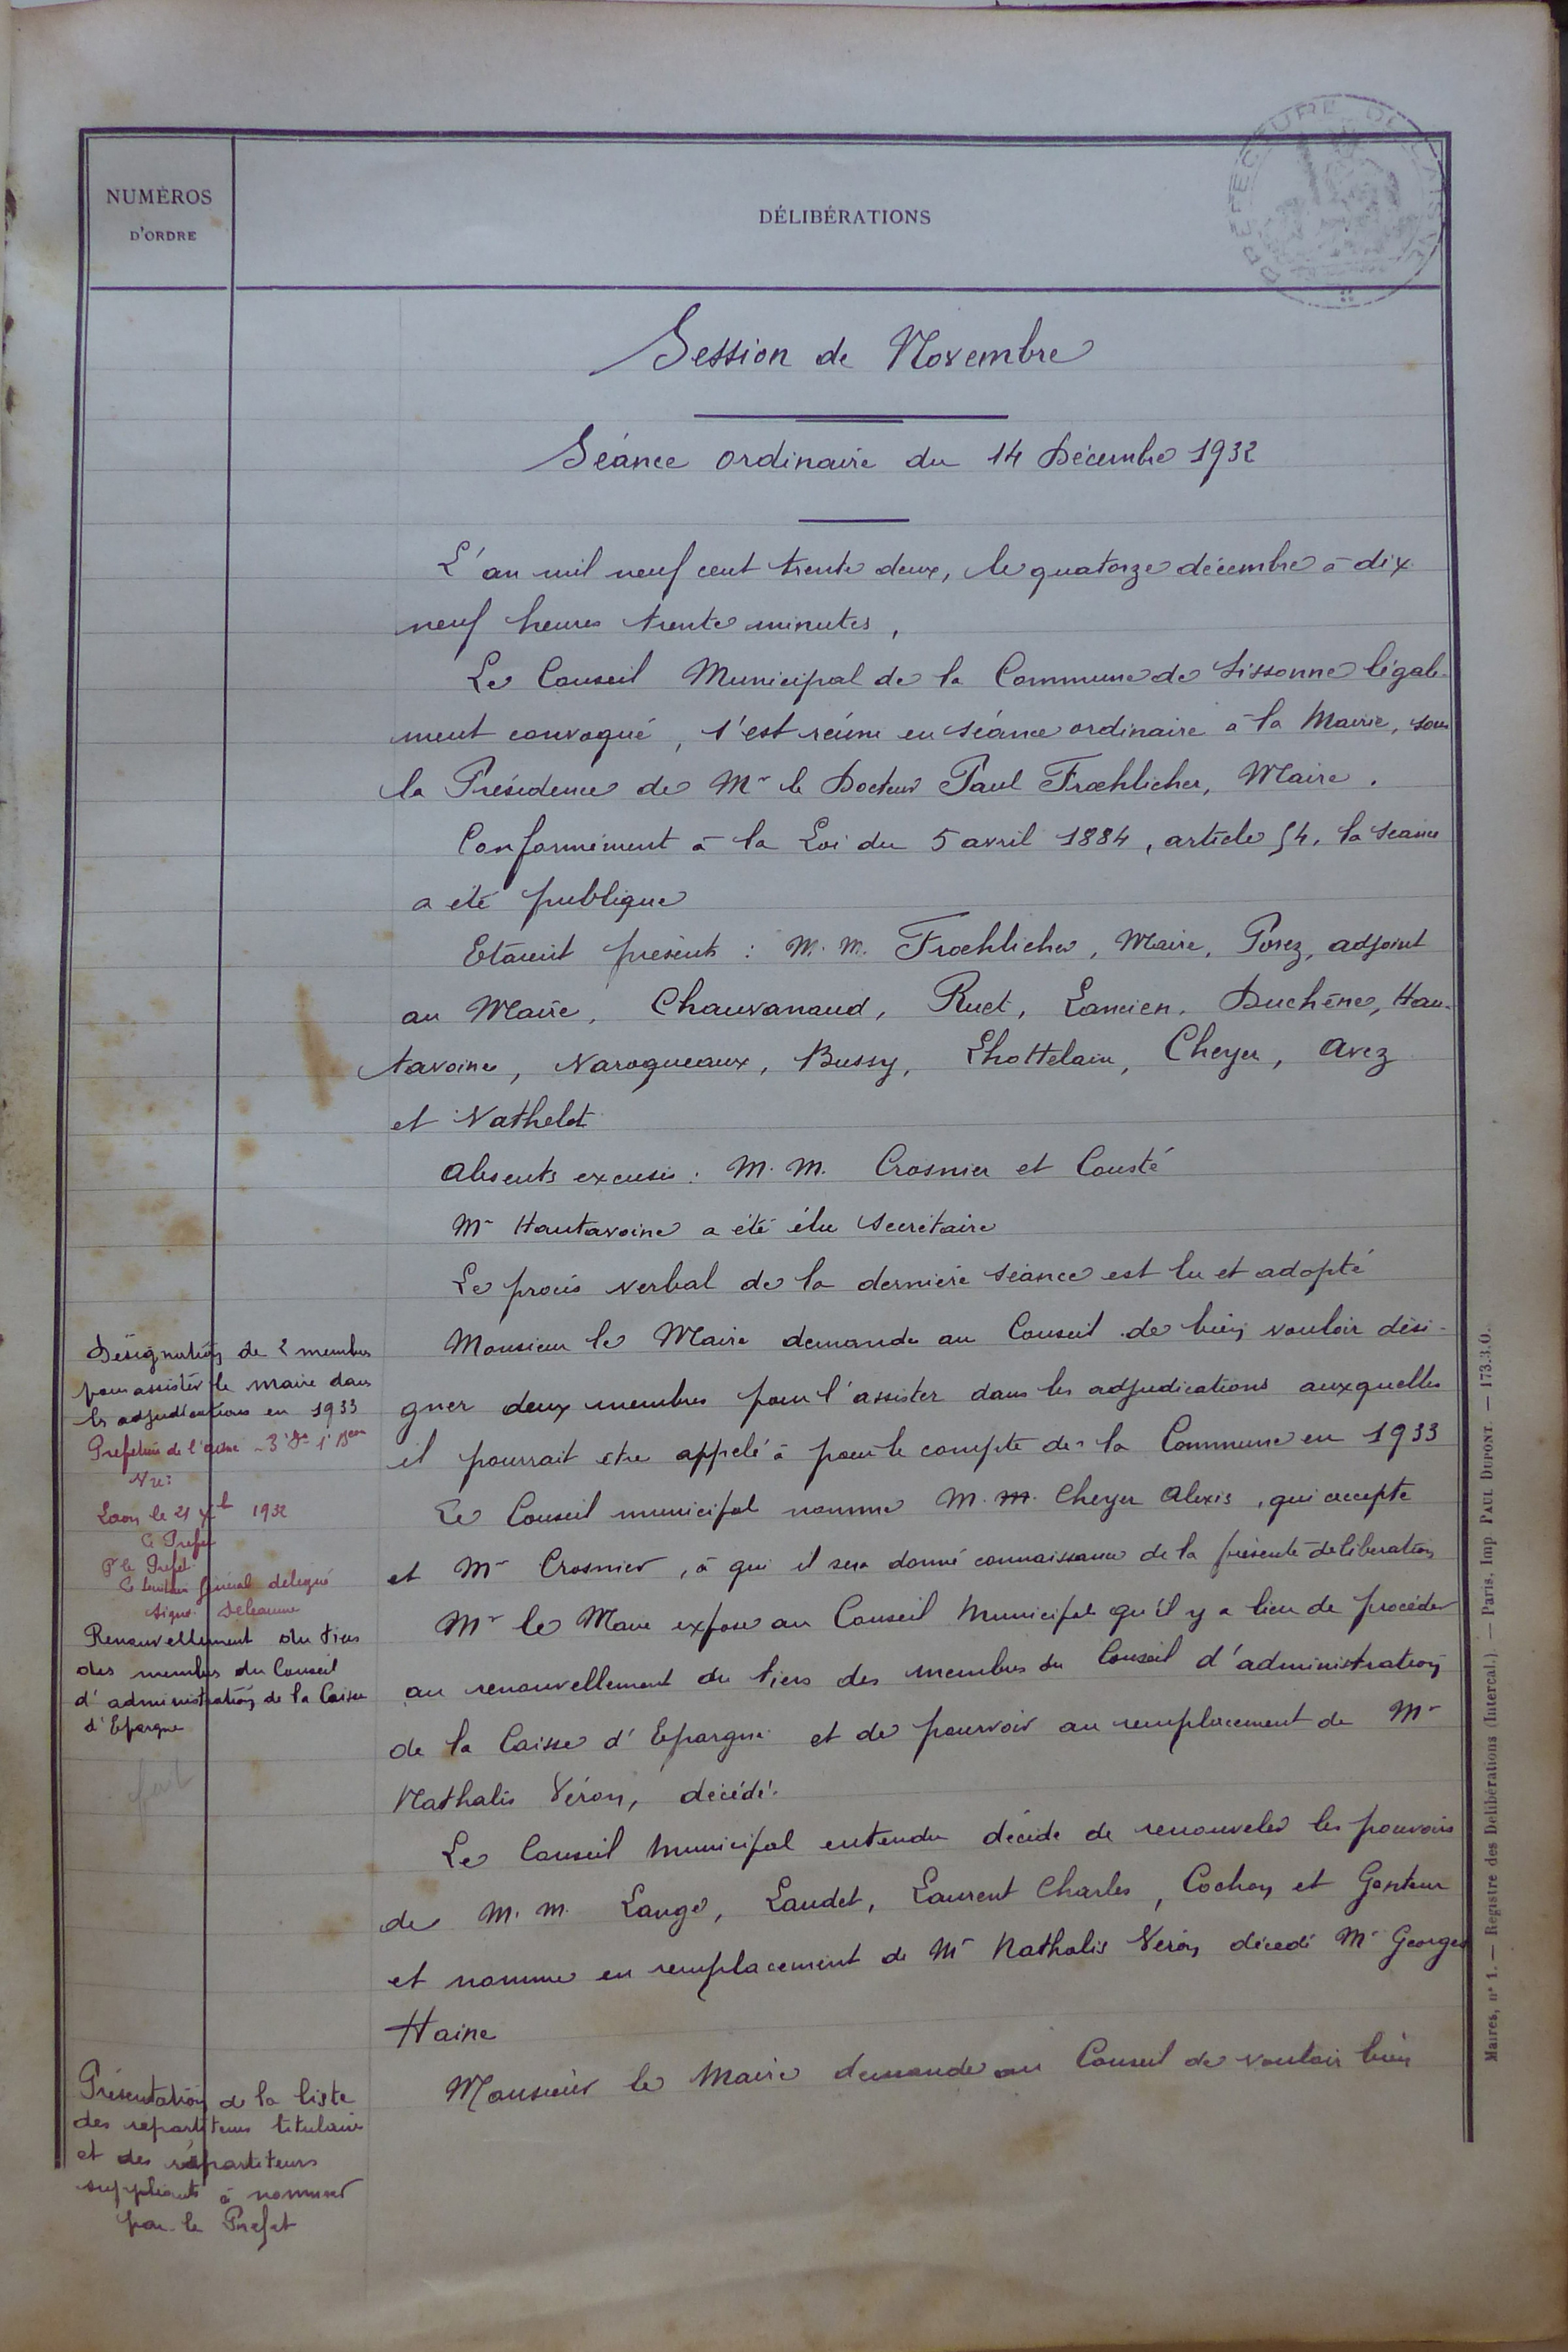 NUMÉROS
D'ORDRE
DÉLIBÉRATIONS
PRÉFECTURE DE L'AISNE
Session de Novembre
Séance ordinaire du 14 Décembre 1932
L'an mil neuf cent trente deux, le quatorze décembre à dix
neuf heures trente minutes,
Le Conseil Municipal de la Commune de Sissonne légale-
ment convoqué, s'est réuni en séance ordinaire à la Mairie, sous
la Présidence de Mr le Docteur Paul Froehlicher, Maire.
Conformément à la Loi du 5 avril 1884, article 54, la séance
a été publique
Etaient présents : M. M. Froehlicher, Maire, Porez, adjoint
au Maire, Chauvanaud, Ruet, Lancien, Duchêne, Hau-
tavoine, Naroqueaux, Bussy, Lhottelain, Cheyer, Avez
et Nathelot
Absents excusés : M. M. Crosnier et Cousté
Mr Hautavoine a été élu secrétaire
Le procès verbal de la dernière séance est lu et adopté
Désignation de 2 membres
pour assister le maire dans
les adjudications en 1933
Préfecture de l'Aisne - 3e Don 1er Beau
Vu :
Laon le 21 Xbre 1932
Le Préfet
Pr le Préfet
Le Secrétaire général délégué
signé
Monsieur le Maire demande au Conseil de bien vouloir dési-
gner deux membres pour l'assister dans les adjudications auxquelles
il pourrait être appelé à pour le compte de la Commune en 1933
Le Conseil municipal nomme M. M. Cheyer Alexis, qui accepte
et Mr Crosnier, à qui il sera donné connaissance de la présente délibération
Renouvellement du tiers
des membres du Conseil
d'administration de la Caisse
d'Epargne
fait
Mr le Maire expose au Conseil Municipal qu'il y a lieu de procéder
au renouvellement du tiers des membres du Conseil d'administration
de la Caisse d'Epargne et de pourvoir au remplacement de Mr
Nathalis Véron, décédé.
Le Conseil Municipal entendu décide de renouveler les pouvoirs
de M. M. Lange, Laudet, Laurent Charles, Cochon et Gonteur
et nomme en remplacement de Mr Nathalis Véron décédé Mr Georges
Haine
Présentation de la liste
des répartiteurs titulaires
et des répartiteurs
suppléants à nommer
par le Préfet
Monsieur le Maire demande au Conseil de vouloir bien
Maires, n° 1. — Registre des Délibérations (Intercal.) — Paris, Imp. PAUL DUPONT. — 173.3.0.